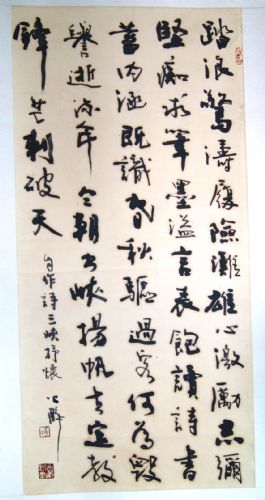 踏浪驚濤履險灘雄心激勵志彌
堅痴求筆墨溢言表飽讀詩書
蓄内涵既識春秋驅過客何為毀
譽逝流年今朝出峽揚帆去定教
鋒芒刺破天
自作詩三峽抒懷